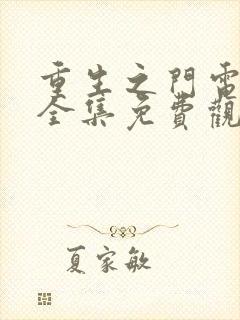 重生之門電
全集免費觀
夏家敏